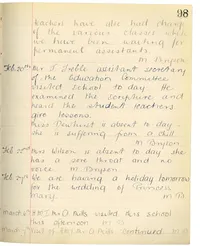 98
teachers have also had charge
of the various classes which
we have been waiting for
permanent assistants.
M. Bunyon
Feb. 20th Mr J. Noble assistant secretary
of the Education Committee
visited school to day. He
examined the scripture and
heard the student teachers
give lessons.
Miss Denthurst is absent to day
she is suffering from a chill
M. Bunyon
Miss Wilson is absent to day she
has a sore throat and no
voice. M. Bunyon
Feb 27th We are having a holiday tomorrow
for the wedding of Princess
Mary. M. B
visited this school
this afternoon M. B
continued